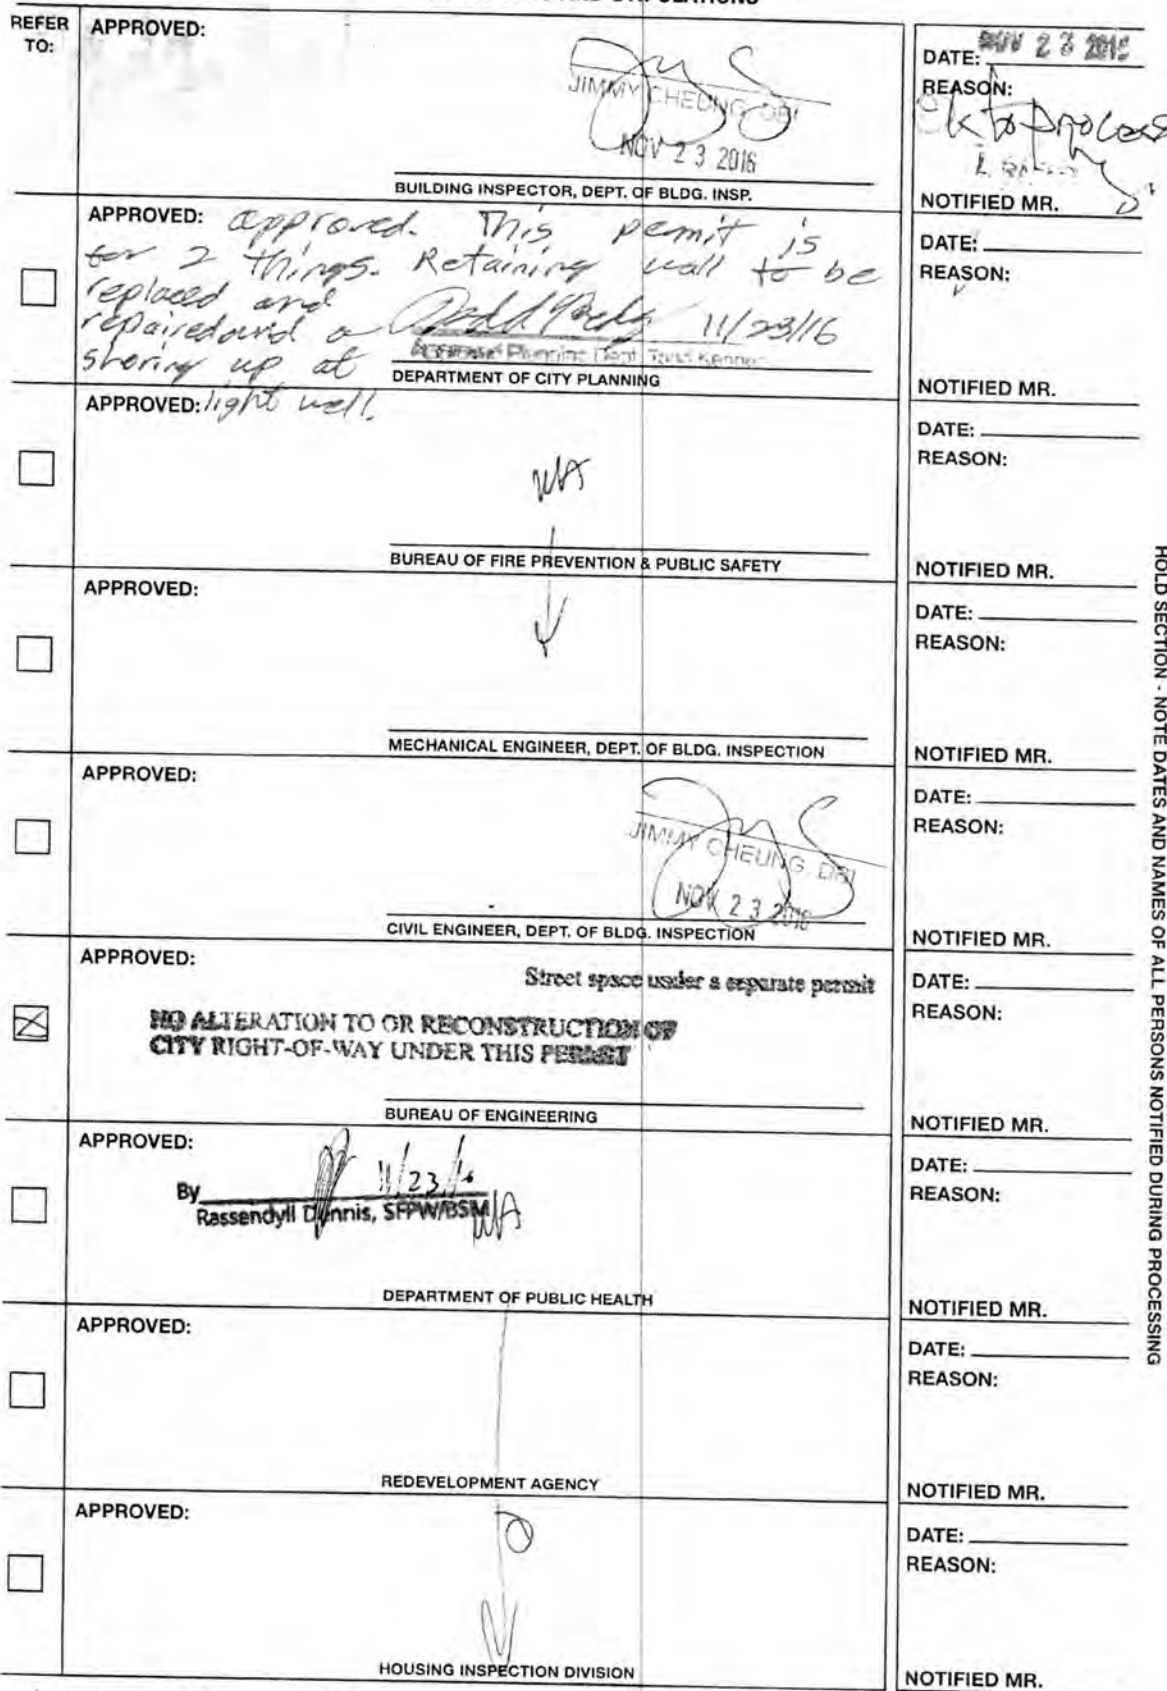 REFER
TO:
APPROVED:
JIMMY CHEUNG, DBI
NOV 23 2016
BUILDING INSPECTOR, DEPT. OF BLDG. INSP.
DATE: NOV 23 2016
REASON:
Ok to process
NOTIFIED MR.
APPROVED: approved. This permit is
for 2 things. Retaining wall to be
replaced and
repaired and a 11/23/16
shoring up at
Approved Planning Dept.
DEPARTMENT OF CITY PLANNING
DATE:
REASON:
NOTIFIED MR.
APPROVED: light well.
N/A
BUREAU OF FIRE PREVENTION & PUBLIC SAFETY
DATE:
REASON:
NOTIFIED MR.
APPROVED:
MECHANICAL ENGINEER, DEPT. OF BLDG. INSPECTION
DATE:
REASON:
NOTIFIED MR.
APPROVED:
JIMMY CHEUNG, DBI
NOV 23 2016
CIVIL ENGINEER, DEPT. OF BLDG. INSPECTION
DATE:
REASON:
NOTIFIED MR.
APPROVED:
Street space under a separate permit
NO ALTERATION TO OR RECONSTRUCTION OF
CITY RIGHT-OF-WAY UNDER THIS PERMIT
BUREAU OF ENGINEERING
DATE:
REASON:
NOTIFIED MR.
APPROVED:
By 11/23/16
Rassendyll Dennis, SFPW/BSM
N/A
DEPARTMENT OF PUBLIC HEALTH
DATE:
REASON:
NOTIFIED MR.
APPROVED:
REDEVELOPMENT AGENCY
DATE:
REASON:
NOTIFIED MR.
APPROVED:
HOUSING INSPECTION DIVISION
DATE:
REASON:
NOTIFIED MR.
HOLD SECTION - NOTE DATES AND NAMES OF ALL PERSONS NOTIFIED DURING PROCESSING